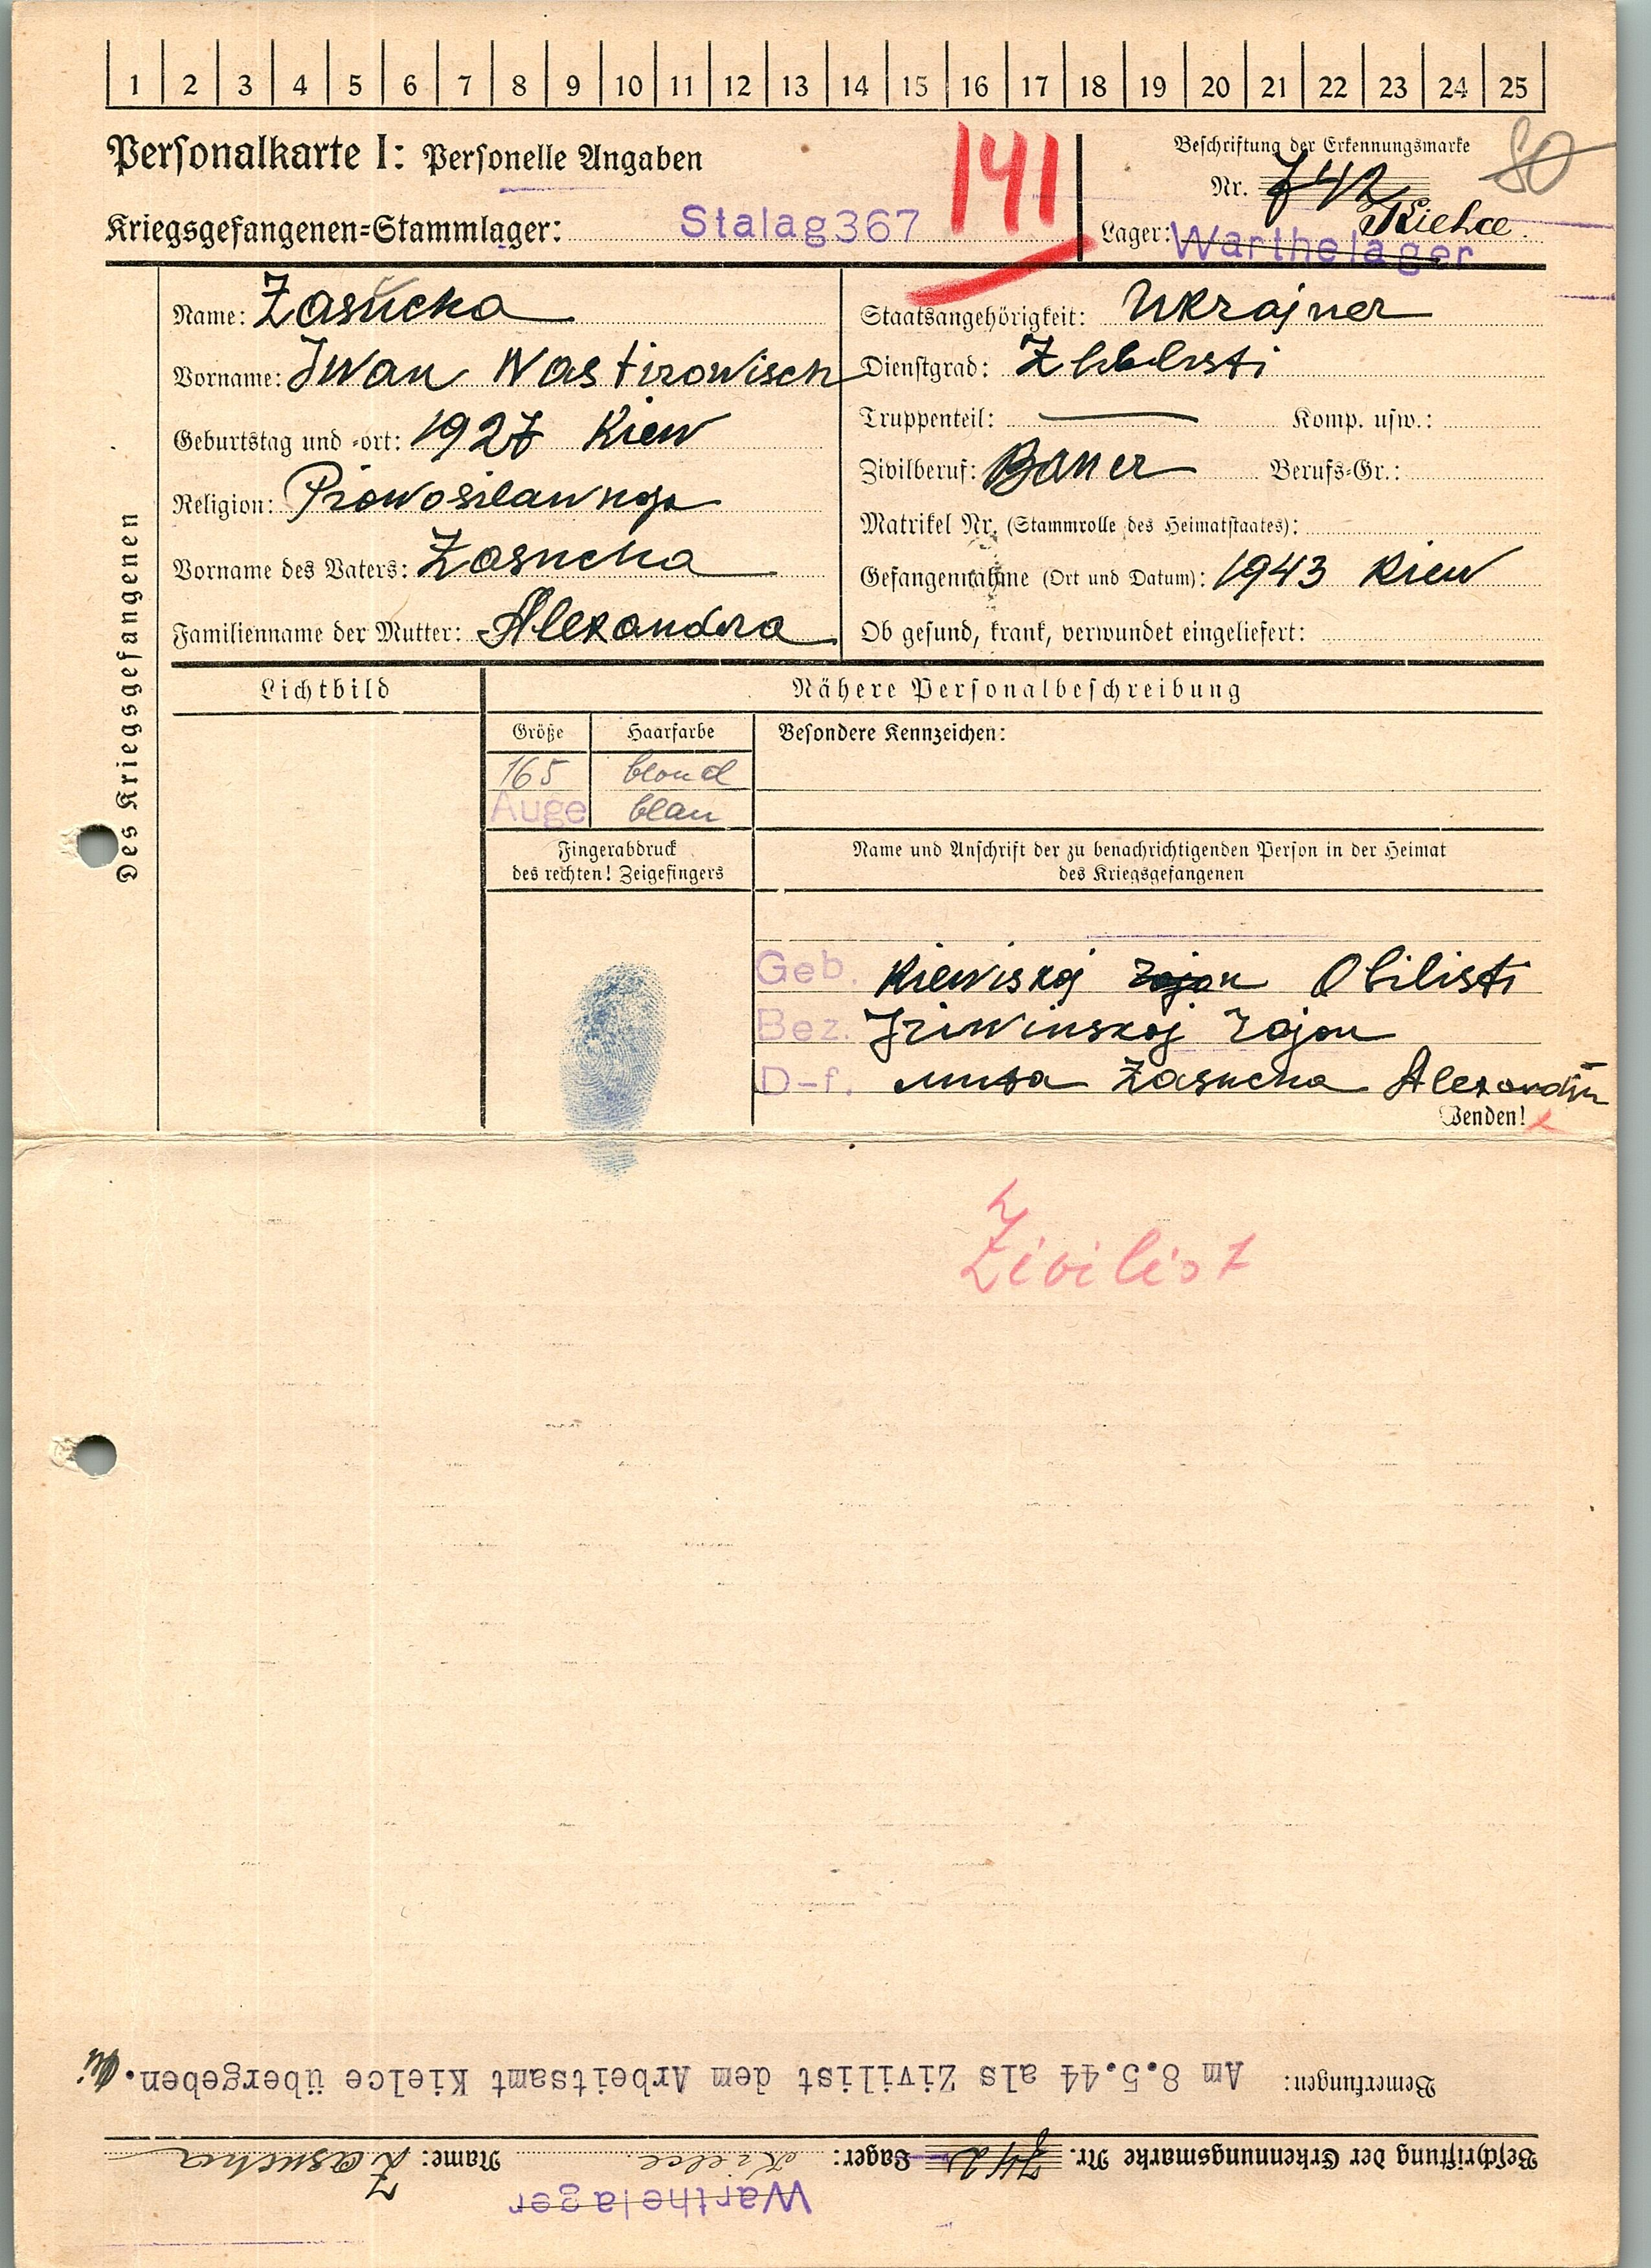 1 2 3 4 5 6 7 8 9 10 11 12 13 14 15 16 17 18 19 20 21 22 23 24 25
Personalkarte I: Personelle Angaben
141
Beschriftung der Erkennungsmarke
80
Nr. 742
Kriegsgefangenen=Stammlager: Stalag 367
Lager: Warthelager Kielce.
Des Kriegsgefangenen
Name: Zasucka
Vorname: Iwan Wastirowisch
Geburtstag und =ort: 1927 Kiew
Religion: Prowosilawnoja
Vorname des Vaters: Zasucha
Familienname der Mutter: Alexandra
Staatsangehörigkeit: Ukrajner
Dienstgrad:
Truppenteil: — Komp. usw.:
Zivilberuf: Bauer Berufs=Gr.:
Matrikel Nr. (Stammrolle des Heimatstaates):
Gefangennahme (Ort und Datum): 1943 Kiew
Ob gesund, krank, verwundet eingeliefert:
Lichtbild
Nähere Personalbeschreibung
Größe Haarfarbe Besondere Kennzeichen:
165 blond
Auge blau
Fingerabdruck
des rechten! Zeigefingers
Name und Anschrift der zu benachrichtigenden Person in der Heimat
des Kriegsgefangenen
Geb. Kiewiskoj rajon Obilisti
Bez. rajon
D-f. Zasucha
Wenden!
Zivilist
Bemerkungen: Am 8.5.44 als Zivilist dem Arbeitsamt Kielce übergeben.
Beschriftung der Erkennungsmarke Nr. 742 Lager: Kielce. Name: Zasucha
Warthelager